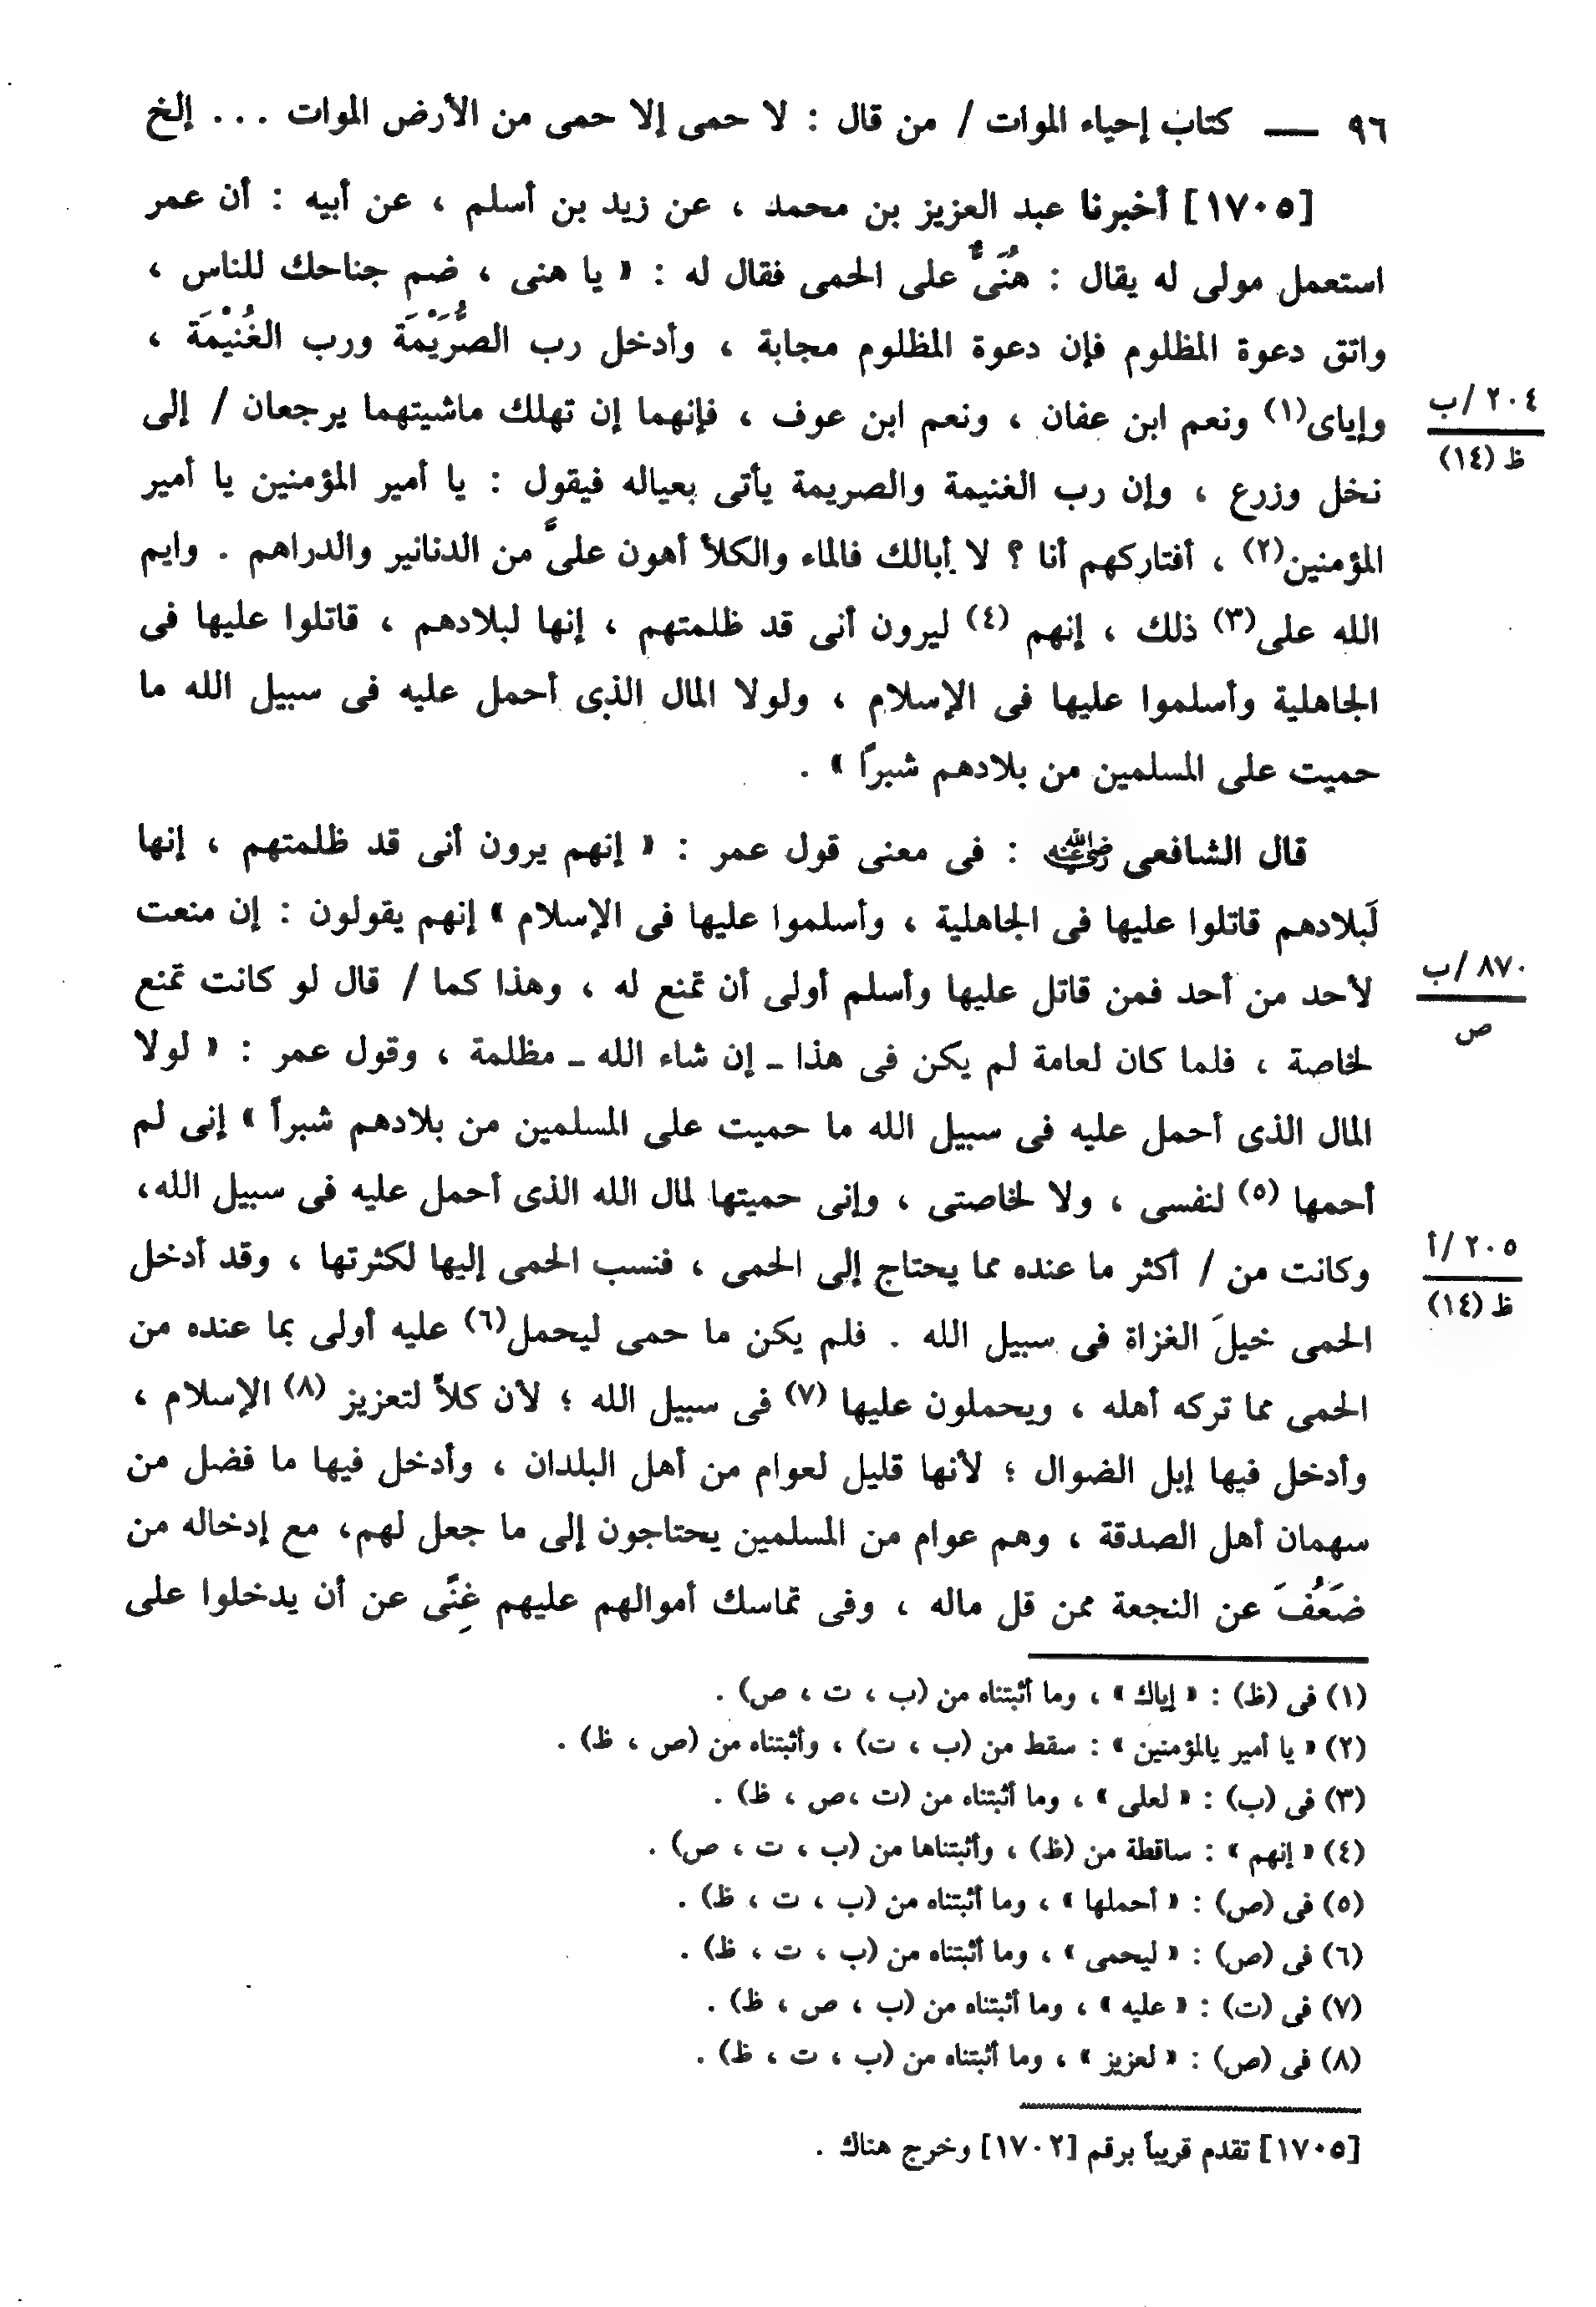 ٩٦ ـــ كتاب إحياء الموات / من قال : لا حمى إلا حمى من الأرض الموات ... إلخ
[١٧٠٥] أخبرنا عبد العزيز بن محمد ، عن زيد بن أسلم ، عن أبيه : أن عمر
استعمل مولى له يقال : هُنَىٌّ على الحمى فقال له : « يا هنى ، ضم جناحك للناس ،
واتق دعوة المظلوم فإن دعوة المظلوم مجابة ، وأدخل رب الصُّرَيْمَة ورب الغُنَيْمَة ،
وإياى(١) ونعم ابن عفان ، ونعم ابن عوف ، فإنهما إن تهلك ماشيتهما يرجعان / إلى
٢٠٤ /ب
ظ (١٤)
نخل وزرع ، وإن رب الغنيمة والصريمة يأتى بعياله فيقول : يا أمير المؤمنين يا أمير
المؤمنين(٢) ، أفتاركهم أنا ؟ لا أبالك فالماء والكلأ أهون علىَّ من الدنانير والدراهم . وايم
الله على(٣) ذلك ، إنهم (٤) ليرون أنى قد ظلمتهم ، إنها لبلادهم ، قاتلوا عليها فى
الجاهلية وأسلموا عليها فى الإسلام ، ولولا المال الذى أحمل عليه فى سبيل الله ما
حميت على المسلمين من بلادهم شبرًا » .
قال الشافعى رضي الله عنه : فى معنى قول عمر : « إنهم يرون أنى قد ظلمتهم ، إنها
لَبلادهم قاتلوا عليها فى الجاهلية ، وأسلموا عليها فى الإسلام » إنهم يقولون : إن منعت
لأحد من أحد فمن قاتل عليها وأسلم أولى أن تمنع له ، وهذا كما / قال لو كانت تمنع
٨٧٠ /ب
ص
لخاصة ، فلما كان لعامة لم يكن فى هذا ـ إن شاء الله ـ مظلمة ، وقول عمر : « لولا
المال الذى أحمل عليه فى سبيل الله ما حميت على المسلمين من بلادهم شبراً » إنى لم
أحمها (٥) لنفسى ، ولا لخاصتى ، وإنى حميتها لمال الله الذى أحمل عليه فى سبيل الله،
وكانت من / أكثر ما عنده مما يحتاج إلى الحمى ، فنسب الحمى إليها لكثرتها ، وقد أدخل
٢٠٥ /أ
ظ (١٤)
الحمى خيلَ الغزاة فى سبيل الله . فلم يكن ما حمى ليحمل(٦) عليه أولى بما عنده من
الحمى مما تركه أهله ، ويحملون عليها (٧) فى سبيل الله ؛ لأن كلاً لتعزيز (٨) الإسلام ،
وأدخل فيها إبل الضوال ؛ لأنها قليل لعوام من أهل البلدان ، وأدخل فيها ما فضل من
سهمان أهل الصدقة ، وهم عوام من المسلمين يحتاجون إلى ما جعل لهم، مع إدخاله من
ضَعُفَ عن النجعة ممن قل ماله ، وفى تماسك أموالهم عليهم غِنًى عن أن يدخلوا على
(١) فى (ظ) : « إياك » ، وما أثبتناه من (ب ، ت ، ص) .
(٢) « يا أمير يالمؤمنين » : سقط من (ب ، ت) ، وأثبتناه من (ص ، ظ) .
(٣) فى (ب) : « لعلى » ، وما أثبتناه من (ت ،ص ، ظ) .
(٤) « إنهم » : ساقطة من (ظ) ، وأثبتناها من (ب ، ت ، ص) .
(٥) فى (ص) : « أحملها » ، وما أثبتناه من (ب ، ت ، ظ) .
(٦) فى (ص) : « ليحمى » ، وما أثبتناه من (ب ، ت ، ظ) .
(٧) فى (ت) : « عليه » ، وما أثبتناه من (ب ، ص ، ظ) .
(٨) فى (ص) : « لعزيز » ، وما أثبتناه من (ب ، ت ، ظ) .
[١٧٠٥] تقدم قريباً برقم [١٧٠٢] وخرج هناك .